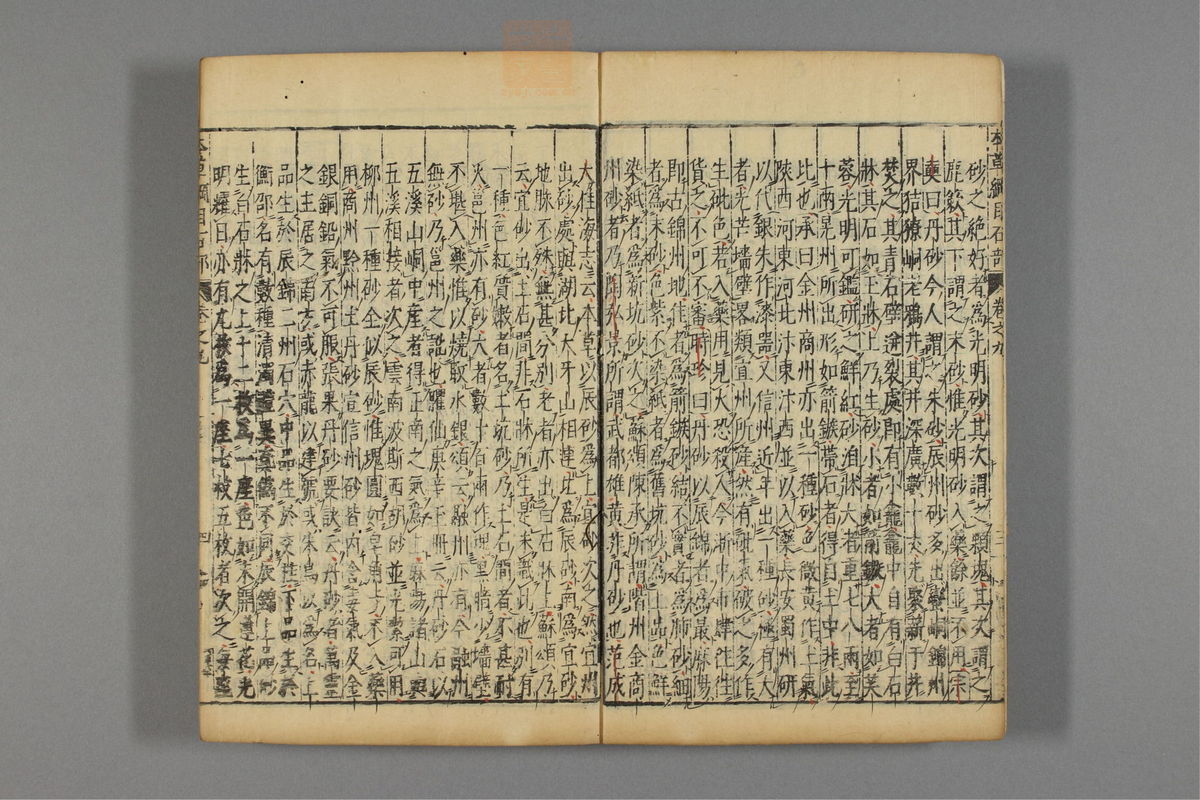 本草綱目石部 卷之九 三
砂之絶好者爲光明砂其次謂之顆塊其次謂之
鹿簌其下謂之末砂惟光明砂入藥餘並不用宗
奭曰丹砂今人謂之朱砂辰州砂多出蠻峒錦州
界狤獠峒老鴉井其井深廣數十丈先聚薪于井
焚之其青石壁迸裂處即有小龕龕中自有白石
牀其石如玉牀上乃生砂小者如箭鏃大者如芙
蓉光明可鑑研之鮮紅砂洎牀大者重七八兩至
十兩晃州所出形如箭鏃帶石者得自土中非此
比也承曰金州商州亦出一種砂色微黃作土氣
陝西河東河北汴東汴西並以入藥長安蜀州研
以代銀朱作漆器又信州近年出一種砂極有大
者光芒墻壁畧類宜州所産然有砒氣破之多作
生砒色若入藥用見火恐殺人今浙中市肆往往
貨之不可不審時珍曰丹砂以辰錦者爲最麻陽
即古錦州地作者爲箭鏃砂結不實者爲肺砂細
者爲末砂色紫不染紙者爲舊坑砂爲上品色鮮
染紙者爲新坑砂次之蘇頌陳承所謂階州金商
州砂者乃陶弘景所謂武都雄黃非丹砂也范成
大桂海志云本草以辰砂爲上宜砂次之然宜州
出砂處與湖北大牙山相連北爲辰砂南爲宜砂
地脉不殊無甚分别老者亦出白石牀上蘇頌乃
云宜砂出土石間非石牀所生是未識此也别有
一種色紅質嫩者名土坑砂乃土石間者不甚耐
火邕州亦有砂大者數十百兩作塊黑暗少墻壁
不堪入藥惟以燒取水銀頌云融州亦有今融州
無砂乃邕州之訛也臞仙庚辛玉册云丹砂石以
五溪山峒中産者得正南之氣爲上麻陽諸山與
五溪相接者次之雲南波斯西胡砂並光潔可用
柳州一種砂全似辰砂惟塊圓如皂角子不入藥
用商州黔州土丹砂宣信州砂皆内含毒氣及金
銀銅鉛氣不可服張果丹砂要訣云丹砂者萬靈
之主居之南方或赤龍以建號或朱鳥以爲名上
品生於辰錦二州石穴中品生於交桂下品生於
衡邵名有數種清濁體異真僞不同辰錦上品砂
生白石牀之上十二枚爲一座色如未開蓮花光
明耀日亦有九枚爲一座七枚五枚者次之每座
本草綱目石部 卷之九 四